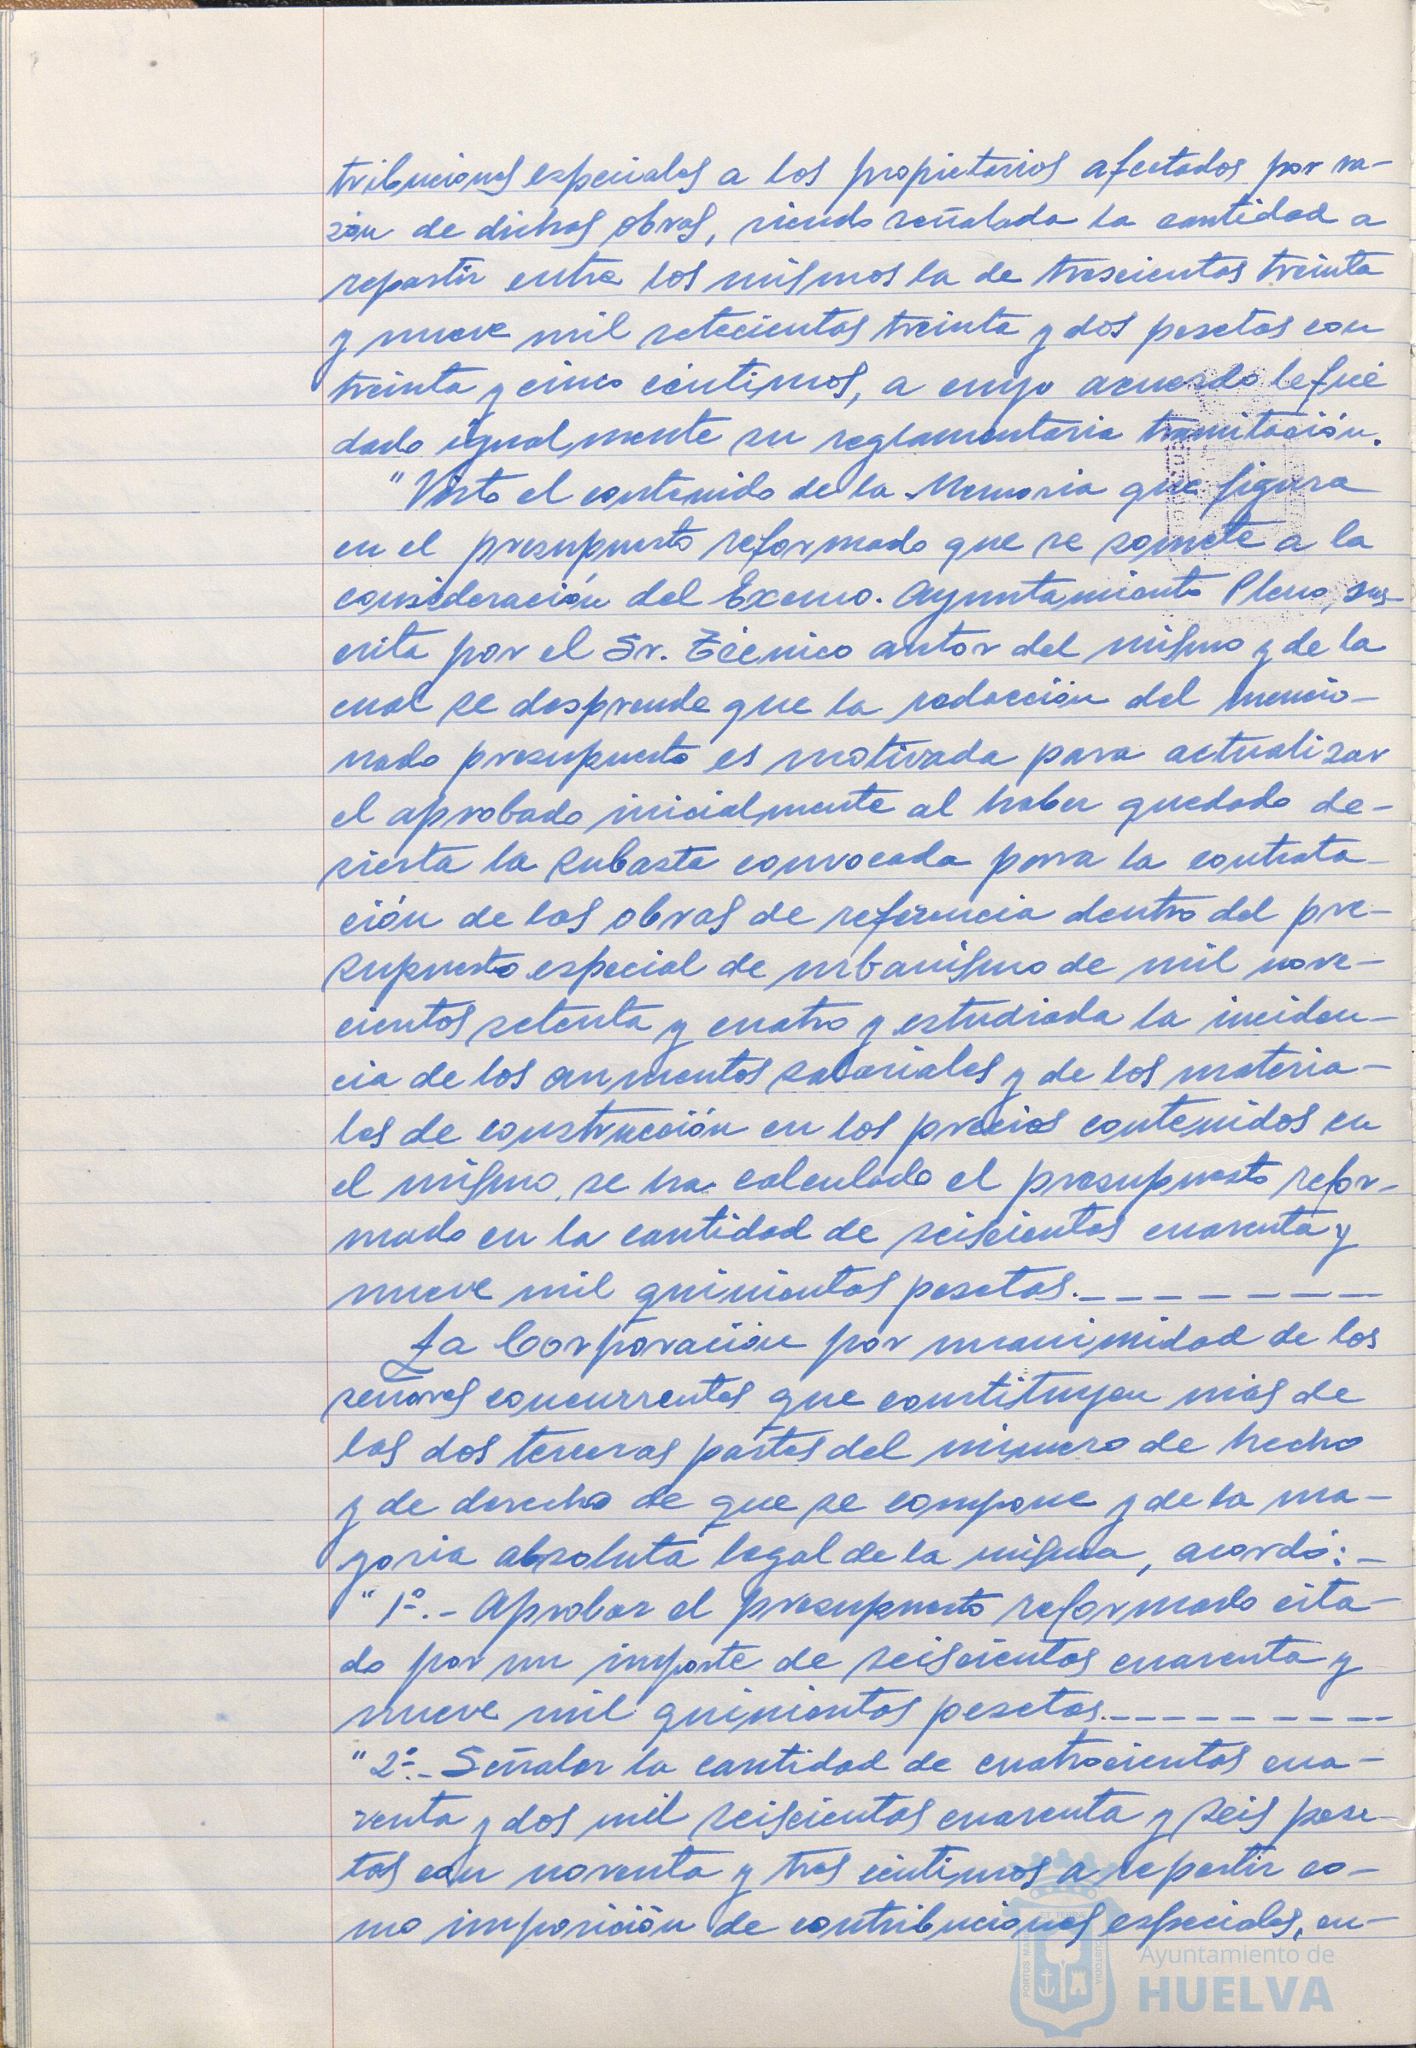 tribuciones especiales a los propietarios afectados por ra-
zón de dichas obras, siendo señalada la cantidad a
repartir entre los mismos la de trescientas treinta
y nueve mil setecientas treinta y dos pesetas con
treinta y cinco céntimos, a cuyo acuerdo le fué
dado igualmente su reglamentaria tramitación.
"Visto el contenido de la Memoria que figura
en el presupuesto reformado que se somete a la
consideración del Excmo. Ayuntamiento Pleno, sus-
crita por el Sr. Técnico autor del mismo y de la
cual se desprende que la redacción del mencio-
nado presupuesto es motivada para actualizar
el aprobado inicialmente al haber quedado de-
sierta la subasta convocada para la contrata-
ción de las obras de referencia dentro del pre-
supuesto especial de urbanismo de mil nove-
cientos setenta y cuatro y estudiada la inciden-
cia de los aumentos salariales y de los materia-
les de construcción en los precios contenidos en
el mismo, se ha calculado el presupuesto refor-
mado en la cantidad de seiscientas cuarenta y
nueve mil quinientas pesetas.- - - - - - - -
La Corporación por unanimidad de los
señores concurrentes que constituyen más de
las dos terceras partes del número de hecho
y de derecho de que se compone y de la ma-
yoria absoluta legal de la misma, acordó:-
"1º.- Aprobar el presupuesto reformado cita-
do por un importe de seiscientas cuarenta y
nueve mil quinientas pesetas.- - - - - - - -
"2º.- Señalar la cantidad de cuatrocientas cua-
renta y dos mil seiscientas cuarenta y seis pese-
tas con noventa y tres céntimos a repartir co-
mo imposición de contribuciones especiales, en-
Ayuntamiento de
HUELVA